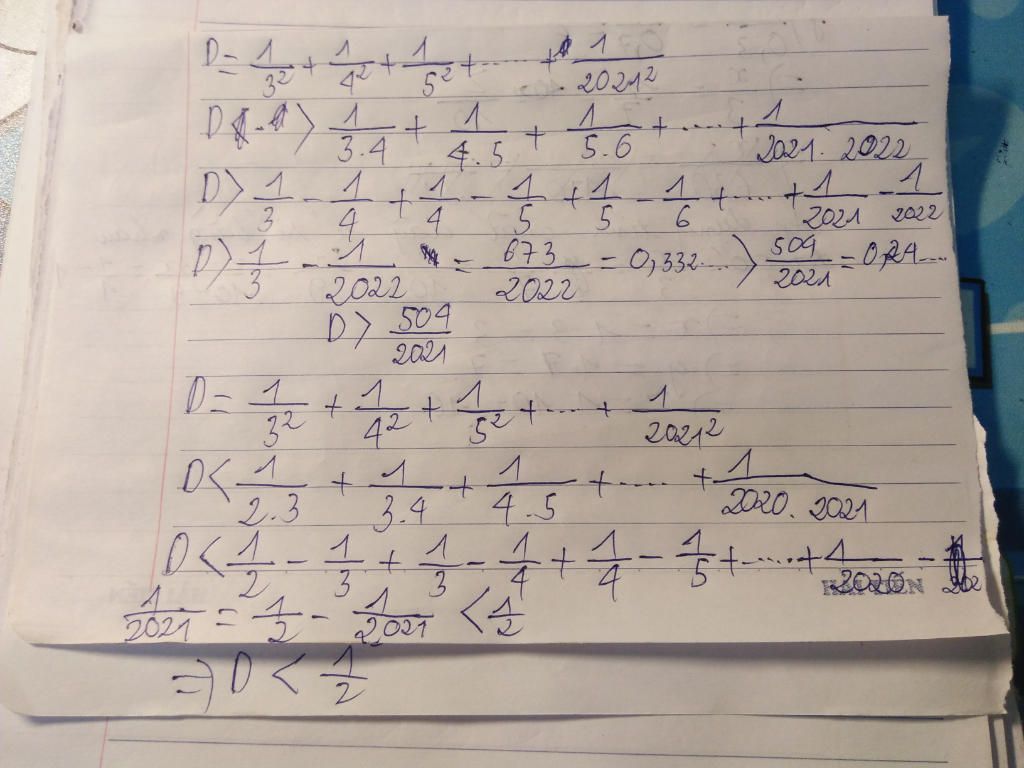 D = 1/3² + 1/4² + 1/5² + ...... + 1/2021²
D > 1/3.4 + 1/4.5 + 1/5.6 + ..... + 1/2021.2022
D > 1/3 - 1/4 + 1/4 - 1/5 + 1/5 - 1/6 + ..... + 1/2021 - 1/2022
D > 1/3 - 1/2022 = 673/2022 = 0,332... > 504/2021 = 0,24...
D > 504/2021
D = 1/3² + 1/4² + 1/5² + ..... + 1/2021²
D < 1/2.3 + 1/3.4 + 1/4.5 + ..... + 1/2020.2021
D < 1/2 - 1/3 + 1/3 - 1/4 + 1/4 - 1/5 + ..... + 1/2020 -
1/2021 = 1/2 - 1/2021 < 1/2
=> D < 1/2